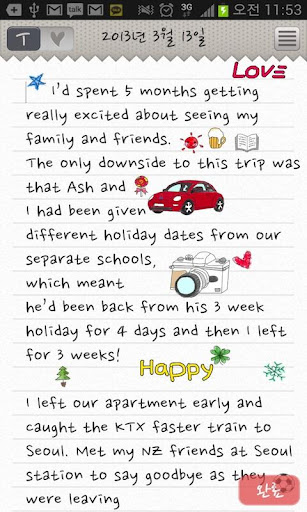 talk
3G
오전 11:53
T
2013년 3월 13일
LOVE
I'd spent 5 months getting
really excited about seeing my
family and friends.
The only downside to this trip was
that Ash and
I had been given
different holiday dates from our
separate schools,
which meant
he'd been back from his 3 week
holiday for 4 days and then I left
for 3 weeks!
Happy
I left our apartment early and
caught the KTX faster train to
Seoul. Met my NZ friends at Seoul
station to say goodbye as they
were leaving
완료